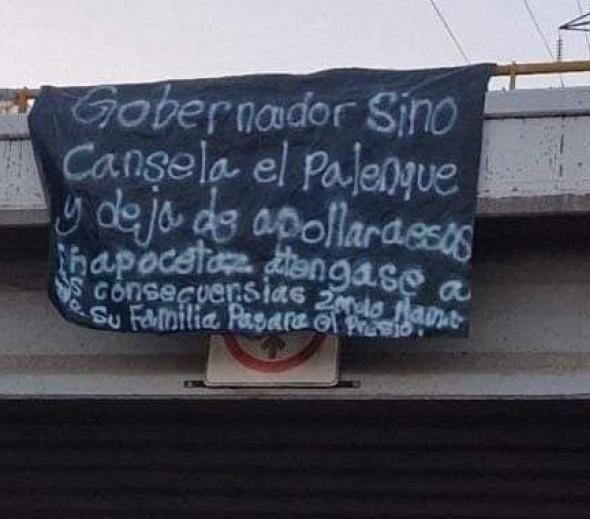 Gobernador Sino
Cansela el Palenque
y deja de apollaraesos
chapocetaz atengase a
las consecuensias 2
Su Familia Pagara el Presio!